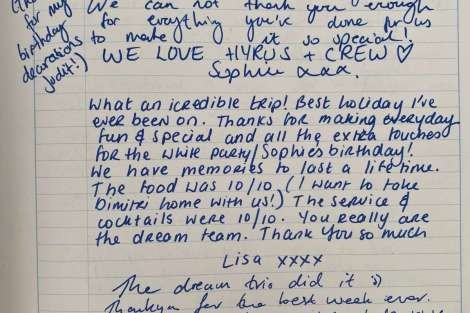 We can not thank you enough
for everything you've done for us
to make it so special!
WE LOVE HYRUS + CREW ♡
Sophie xxx.
for my
birthday
decorations
Judit!)
What an icredible trip! Best holiday I've
ever been on. Thanks for making everyday
fun & special and all the extra touches
for the white party/Sophie's birthday!
We have memories to last a lifetime.
The food was 10/10 (I want to take
Dimitri home with us!) The service &
cocktails were 10/10. You really are
the dream team. Thank you so much
Lisa xxxx
The dream trio did it :)
Thankyou for the best week ever.